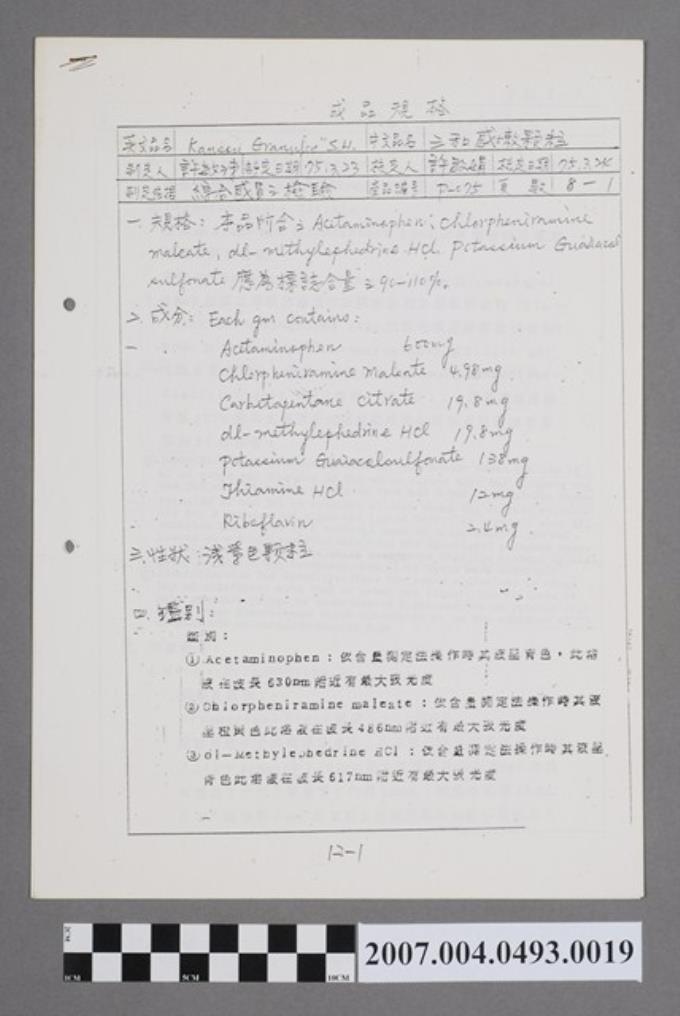 成品規格
英文品名 Kancou Granules "S.H. 中文品名 三和感嗽顆粒
制定人 制定日期 75.3.23 核定人 核定日期 75.3.24
制定依據 綜合感冒之檢驗 產品編號 P-c75 頁數 8-1
一. 規格: 本品所含之 Acetaminophen; Chlorpheniramine
maleate, dl-methylephedrine HCl. Potassium Guaiacol
sulfonate 應為標誌含量之90-110%。
二. 成分: Each gm contains:
Acetaminophen 600mg
Chlorpheniramine Maleate 4.98mg
Carbetapentane Citrate 19.8mg
dl-methylephedrine HCl 19.8mg
Potassium Guaiacolsulfonate 138mg
Thiamine HCl 12mg
Riboflavin 2.4mg
三. 性狀: 淺黃色顆粒
四. 鑑別:
鑑別:
①Acetaminophen:依含量測定法操作時其液呈青色,此溶
液在波長630nm附近有最大吸光度
②Chlorpheniramine maleate:依含量測定法操作時其液
呈橙黃色此溶液在波長486nm附近有最大吸光度
③dl-Methylephedrine HCl:依含量測定法操作時其液呈
青色此溶液在波長617nm附近有最大吸光度
12-1
1CM 5CM 10CM
2007.004.0493.0019